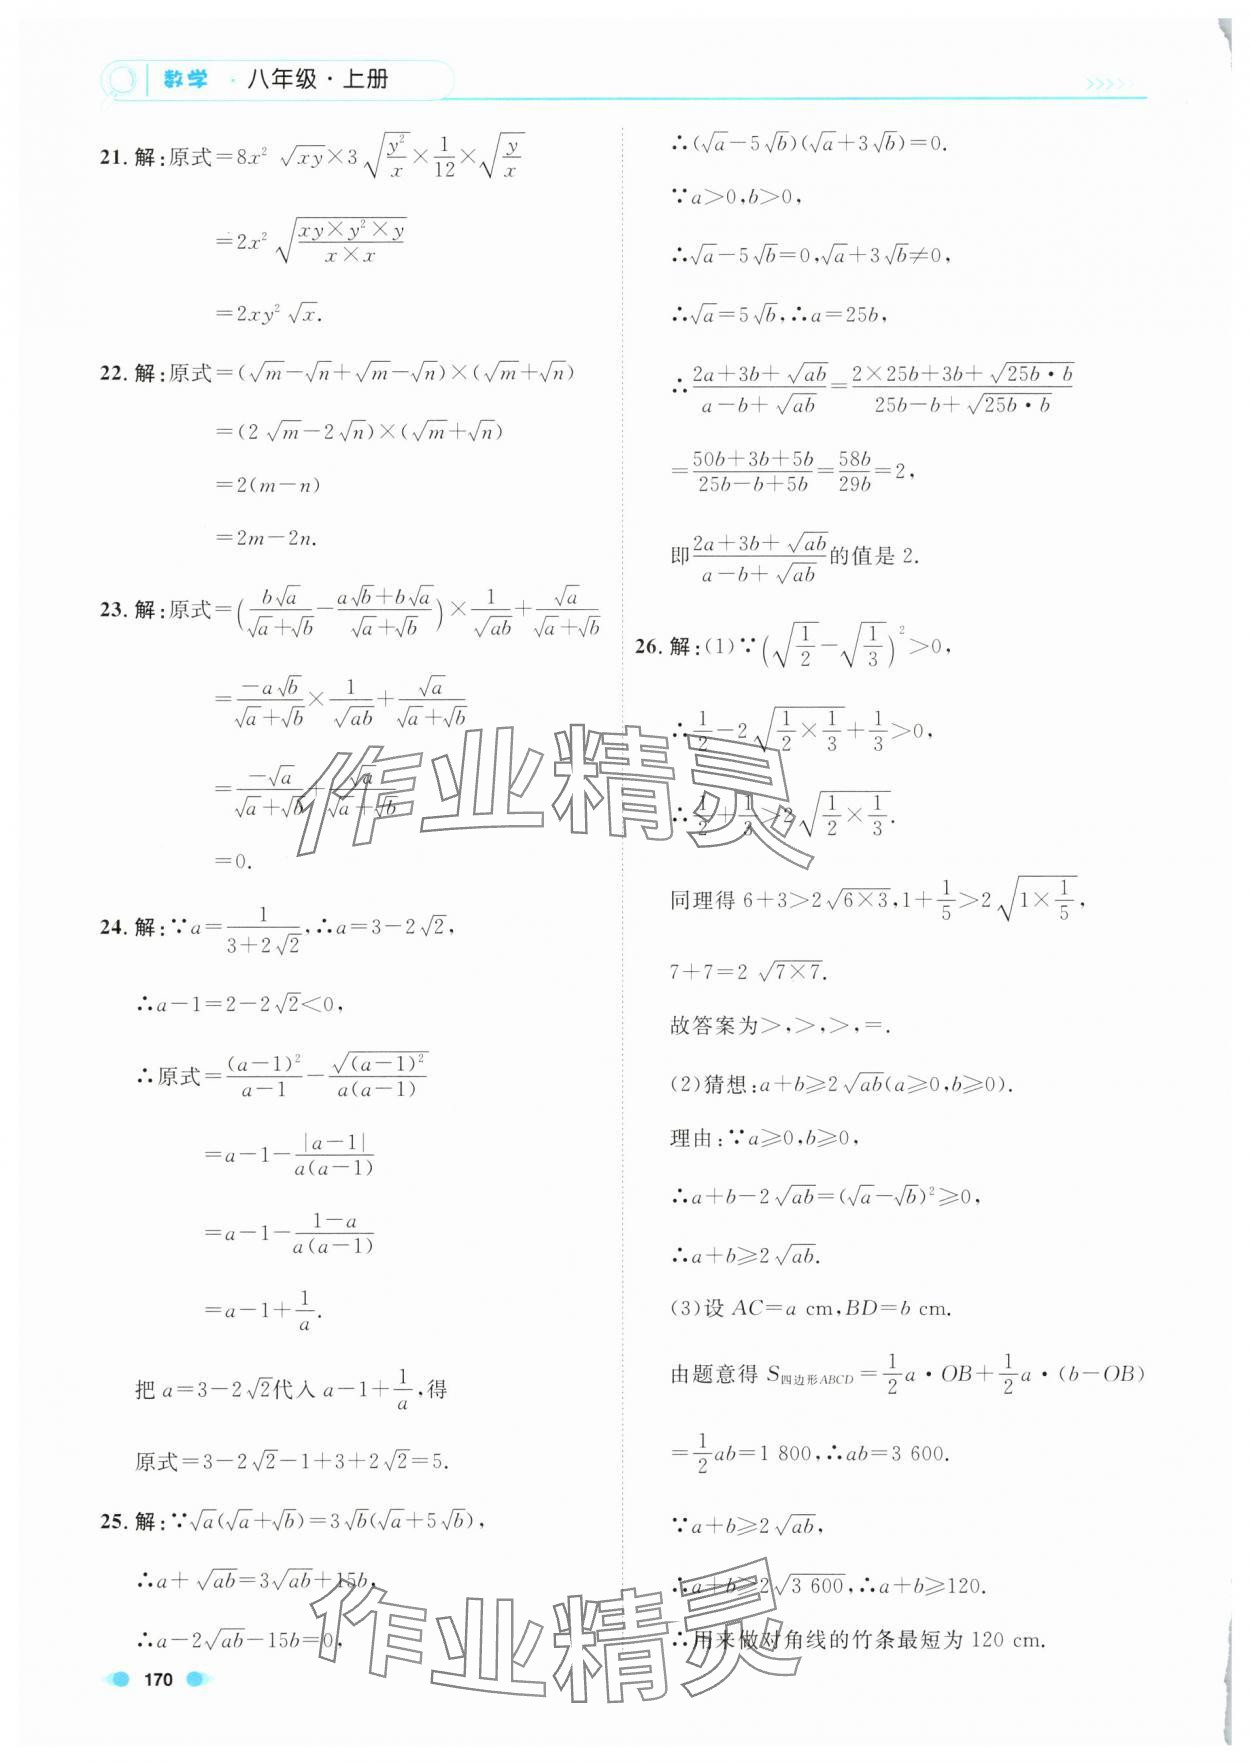 数学 · 八年级 · 上册
21. 解:原式=8x² √(xy)×3√(y²/x)×1/12×√(y/x)
=2x²√((xy×y²×y)/(x×x))
=2xy²√x.
22. 解:原式=(√m-√n+√m-√n)×(√m+√n)
=(2√m-2√n)×(√m+√n)
=2(m-n)
=2m-2n.
23. 解:原式=(b√a/(√a+√b)-(a√b+b√a)/(√a+√b))×1/√(ab)+√a/(√a+√b)
=-a√b/(√a+√b)×1/√(ab)+√a/(√a+√b)
=-√a/(√a+√b)+√a/(√a+√b)
=0.
24. 解:∵a=1/(3+2√2),∴a=3-2√2,
∴a-1=2-2√2<0,
∴原式=(a-1)²/(a-1)-√((a-1)²)/(a(a-1))
=a-1-|a-1|/(a(a-1))
=a-1-(1-a)/(a(a-1))
=a-1+1/a.
把a=3-2√2代入a-1+1/a,得
原式=3-2√2-1+3+2√2=5.
25. 解:∵√a(√a+√b)=3√b(√a+5√b),
∴a+√(ab)=3√(ab)+15b,
∴a-2√(ab)-15b=0,
∴(√a-5√b)(√a+3√b)=0.
∵a>0,b>0,
∴√a-5√b=0,√a+3√b≠0,
∴√a=5√b,∴a=25b,
∴(2a+3b+√(ab))/(a-b+√(ab))=(2×25b+3b+√(25b·b))/(25b-b+√(25b·b))
=(50b+3b+5b)/(25b-b+5b)=58b/29b=2,
即(2a+3b+√(ab))/(a-b+√(ab))的值是2.
26. 解:(1)∵(√(1/2)-√(1/3))²>0,
∴1/2-2√(1/2×1/3)+1/3>0,
∴1/2+1/3>2√(1/2×1/3).
同理得6+3>2√(6×3),1+1/5>2√(1×1/5),
7+7=2√(7×7).
故答案为>,>,>,=.
(2)猜想:a+b⩾2√(ab)(a⩾0,b⩾0).
理由:∵a⩾0,b⩾0,
∴a+b-2√(ab)=(√a-√b)²⩾0,
∴a+b⩾2√(ab).
(3)设AC=a cm,BD=b cm.
由题意得S四边形ABCD=1/2a·OB+1/2a·(b-OB)
=1/2ab=1 800,∴ab=3 600.
∵a+b⩾2√(ab),
∴a+b⩾2√(3 600),∴a+b⩾120.
∴用来做对角线的竹条最短为120 cm.
作业精灵
作业精灵
170